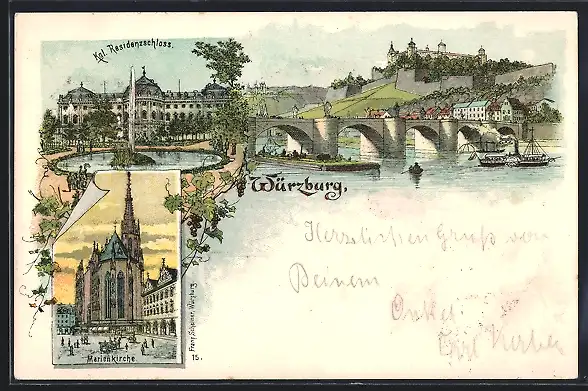 Kgl. Residenzschloss.
Würzburg.
Herzlichen Gruß von
Deinem
Onkel
Marienkirche
Franz Scheiner, Würzburg
15.